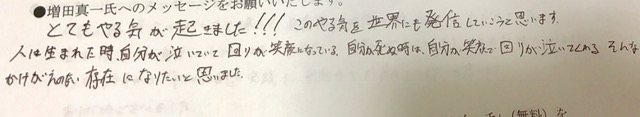 ●増田真一氏へのメッセージをお願いいたします。
とてもやる気が起きました!!! このやる気を世界にも発信していこうと思います。
人は生まれた時、自分が泣いていて回りが笑顔になっている。自分が死ぬ時は、自分が笑顔で回りが泣いてくれる そんな
かけがえのない存在になりたいと思いました。
(無料)を